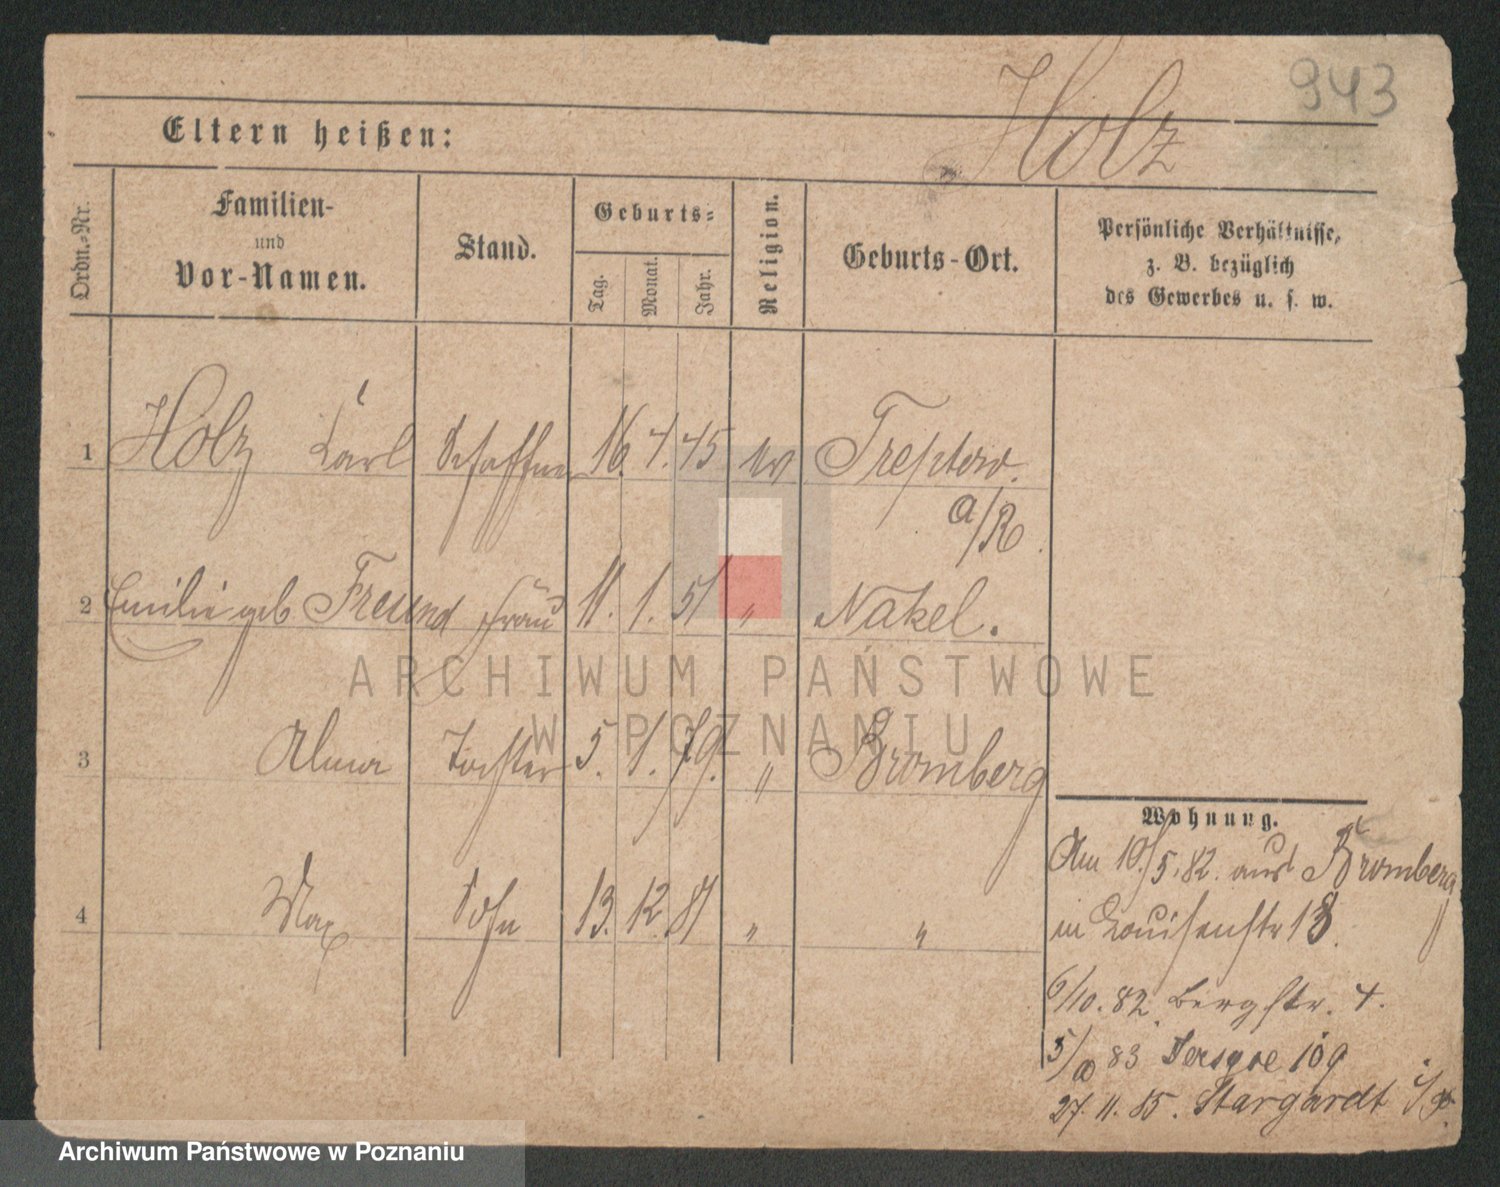 943
Holz
Eltern heißen:
Ordn.-Nr.
Familien-
und
Vor-Namen.
Stand.
Geburts-
Tag.
Monat.
Jahr.
Religion.
Geburts-Ort.
Persönliche Verhältnisse,
z. B. bezüglich
des Gewerbes u. s. w.
1 Holz Karl Schaffner 16. 45 ev Treptow
a/R.
2 Emilie geb Freund Frau 11. 1. 51 " Nakel.
3 Alma Tochter 5. 1. 79. " Bromberg
4 Max Sohn 13. 12. 81 " "
Wohnung.
Am 10/5.82. aus Bromberg
in Louisenstr 18.
6/10.82. Bergstr. 4.
5/ 83 Jersyce 109
27.11.85. Stargardt i/P.
ARCHIWUM PAŃSTWOWE
W POZNANIU
Archiwum Państwowe w Poznaniu